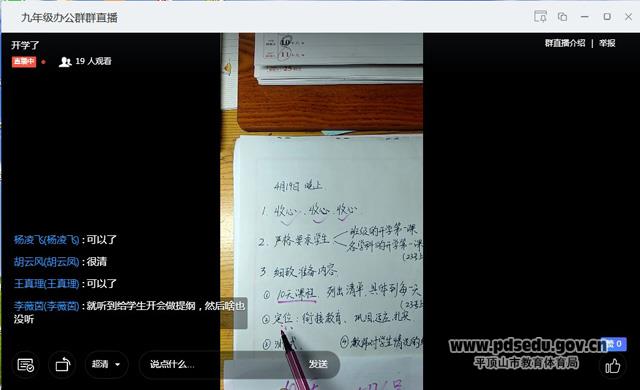 九年级办公群群直播
开学了
群直播介绍 | 举报
直播中
19 人观看
4月19日 晚上
1. 收心、收心、收心
2. 严格要求学生
班级的开学第一课
各学科的开学第一课
3. 细致准备内容
① 10天课程 列出清单
② 定位: 衔接教育、巩固
③
④ 教师对学生情况的
杨凌飞(杨凌飞) : 可以了
胡云风(胡云凤) : 很清
王真理(王真理) : 可以了
李薇茵(李薇茵) : 就听到给学生开会做提纲，然后啥也
没听
超清
说点什么...
发送
赞 0
www.pdsedu.gov.cn
平顶山市教育体育局